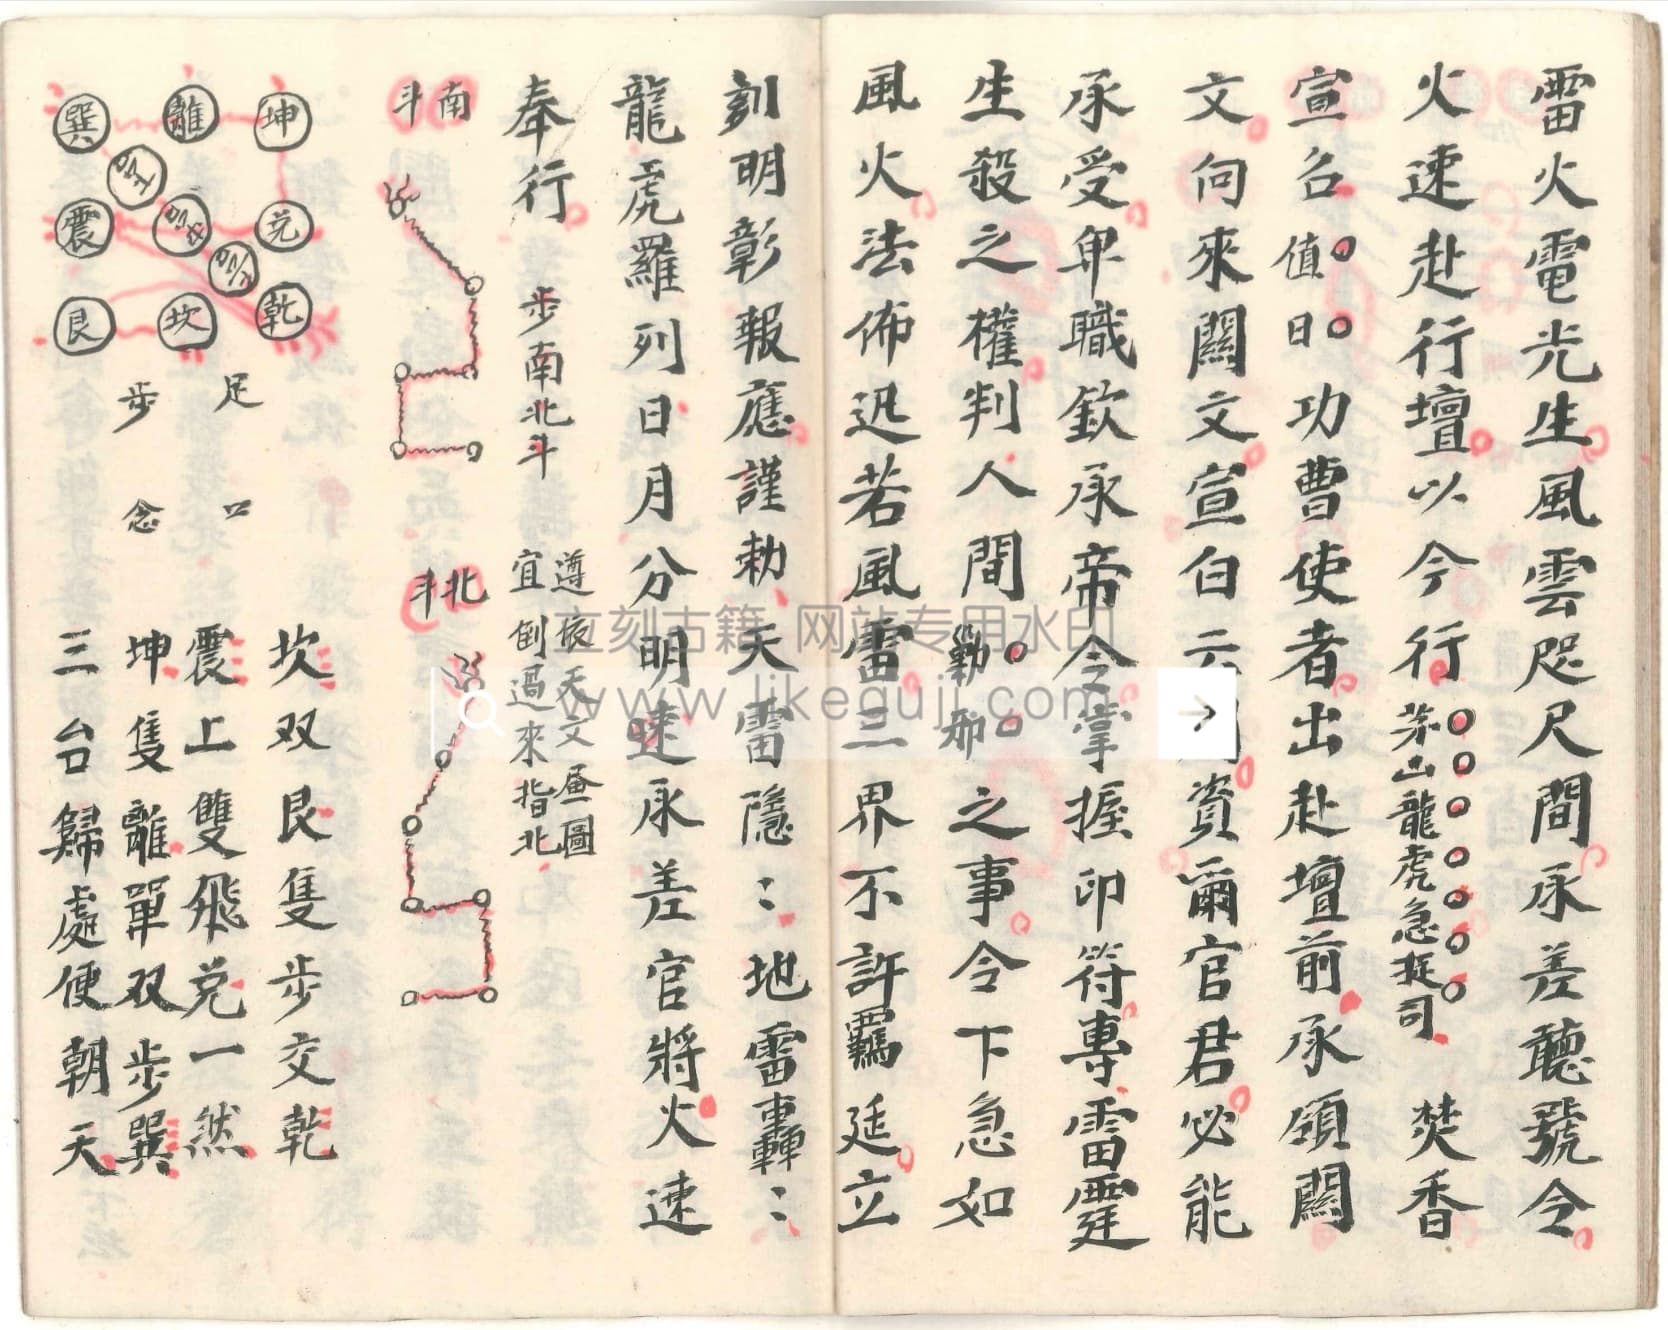 雷火電光生風雲咫尺間承差聽號令
火速赴行壇以今行茅山龍虎急捉司 焚香
宣名值日功曹使者出赴壇前承領關
文向來關文宣白云資爾官君必能
承受卑職欽承帝令掌握印符專雷霆
生殺之權判人間勦邪之事令下急如
風火法佈迅若風雷三界不許羈延立
刻明彰報應謹勅天雷隱〻地雷轟〻
龍虎羅列日月分明速承差官將火速
奉行 步南北斗
遵依天文盛圖
宜倒過來指北
南斗
北斗
坤 離 巽
兌 震
乾 坎 艮
足步
口念
坎双艮隻步交乾
震上雙飛兌一然
坤隻離單双步巽
三台歸處便朝天
立刻古籍 网站专用水印
www.likeguji.com